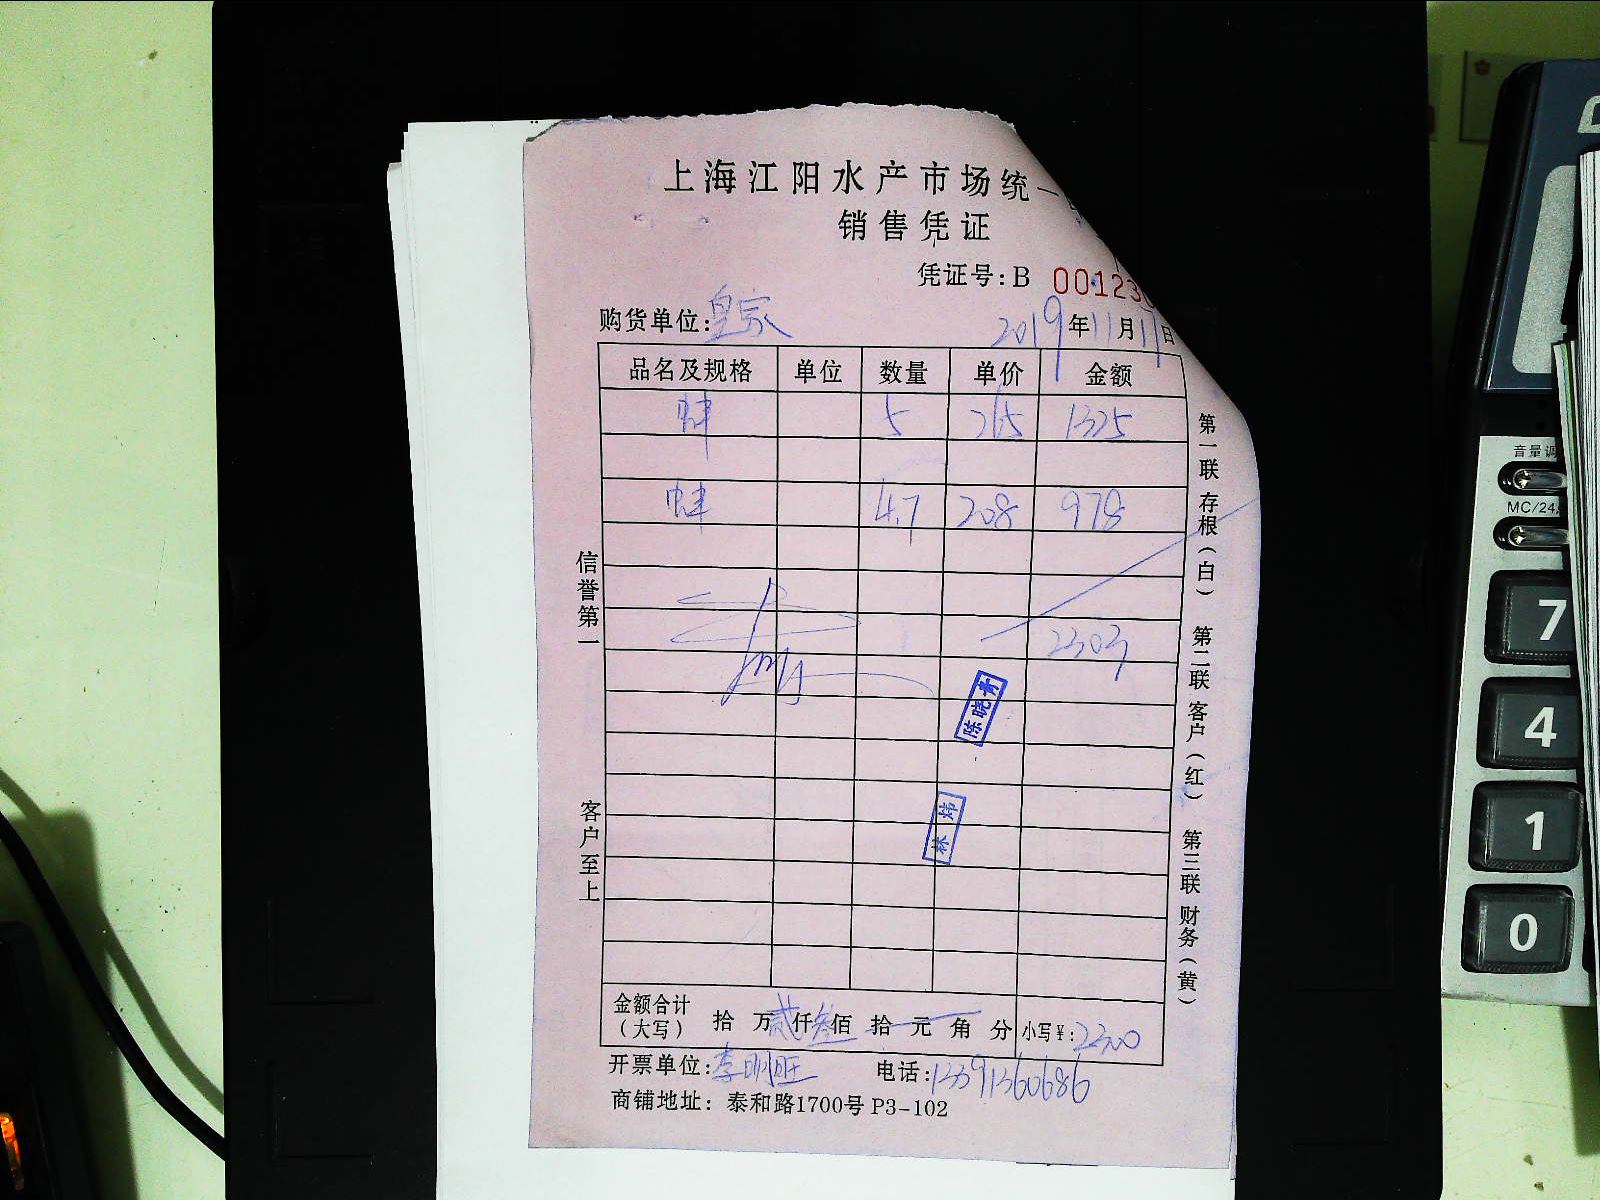 上海江阳水产市场统一
销售凭证
凭证号:B 00123
购货单位:皇家 2019年11月11日
品名及规格 单位 数量 单价 金额
蚌 5 265 1325
蚌 4.7 208 978
2303
陈晓青
林炜
金额合计(大写) 拾 万贰仟叁佰 拾 元 角 分 小写¥:2300
开票单位:李明旺 电话:13391360686
商铺地址: 泰和路1700号 P3-102
信誉第一
客户至上
第一联 存根(白) 第二联 客户(红) 第三联 财务(黄)
音量调
MC/24
7
4
1
0